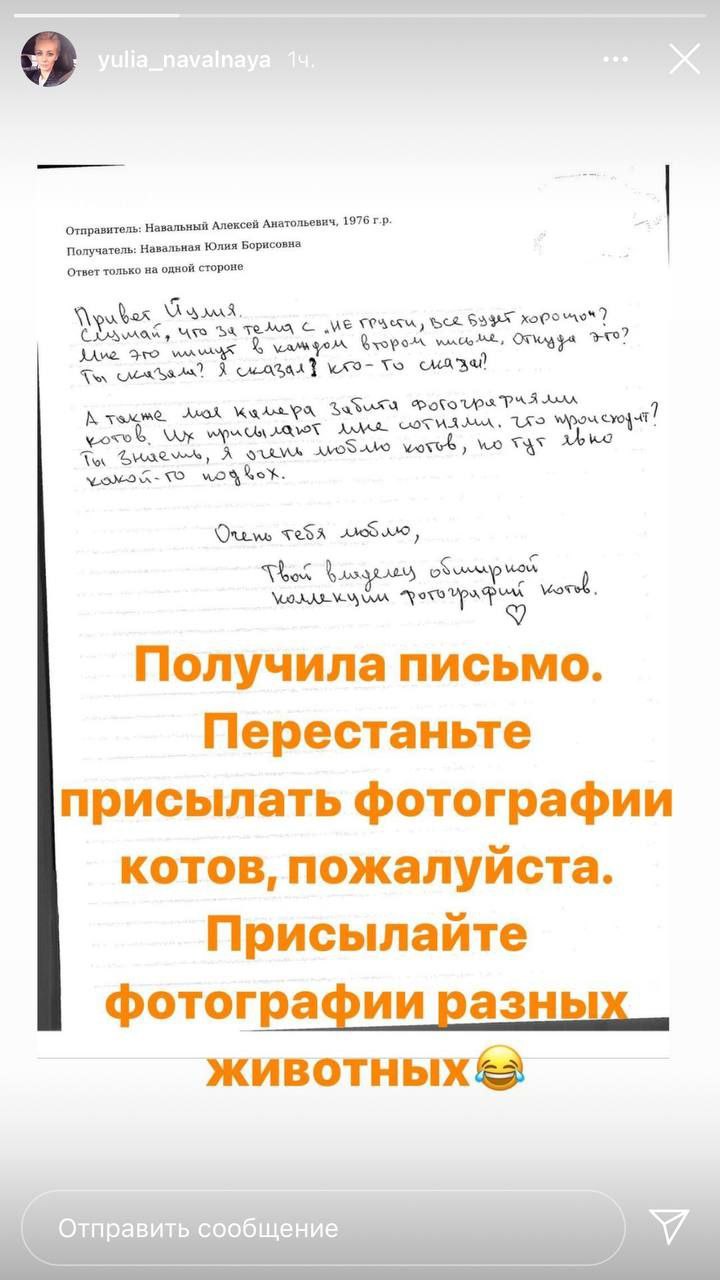 yulia_navalnaya 1ч.
Отправитель: Навальный Алексей Анатольевич, 1976 г.р.
Получатель: Навальная Юлия Борисовна
Ответ только на одной стороне
Привет Юлия.
Слушай, что за тема с „не грусти, все будет хорошо“?
Мне это пишут в каждом втором письме. Откуда это?
Ты сказала? Я сказал? кто-то сказал?
А также моя камера забита фотографиями
котов. Их присылают мне сотнями. что происходит?
Ты знаешь, я очень люблю котов, но тут явно
какой-то подвох.
Очень тебя люблю,
Твой владелец обширной
коллекции фотографий котов.
♡
Получила письмо.
Перестаньте
присылать фотографии
котов, пожалуйста.
Присылайте
фотографии разных
животных😂
Отправить сообщение